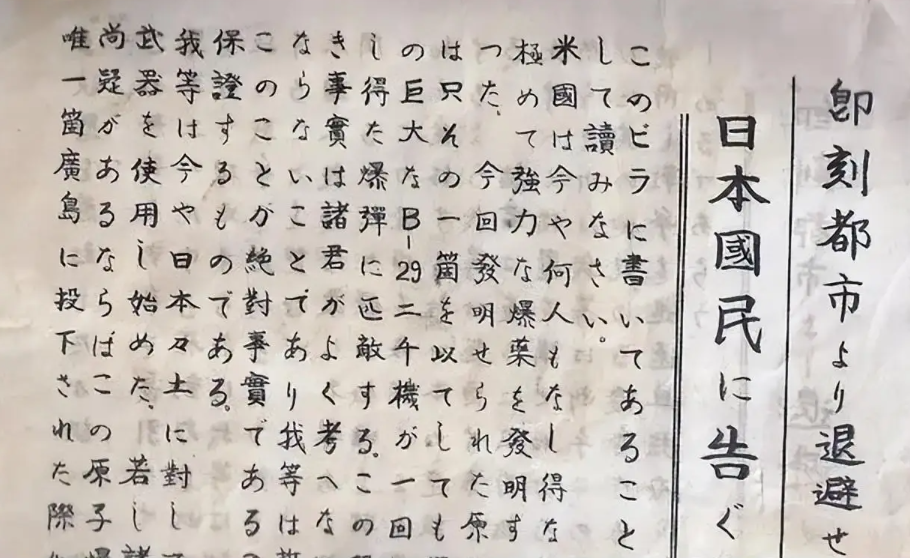 卽刻都市より退避せ
日本國民に告ぐ
このビラに書いてあること
して讀みなさい。
米國は今や何人もなし得な
極めて強力な爆薬を發明す
つた、今回發明せられた原
は只その一箇を以てしても
の巨大なB-29二千機が一回
し得た爆彈に匹敵する。この
き事實は諸君がよく考へな
ならないことであり我等は
このことが絶對事實である
保證するものである。
我等は今や日本々土に對し
武器を使用し始めた、若し諸
尚疑があるならばこの原子
唯一箇廣島に投下された際